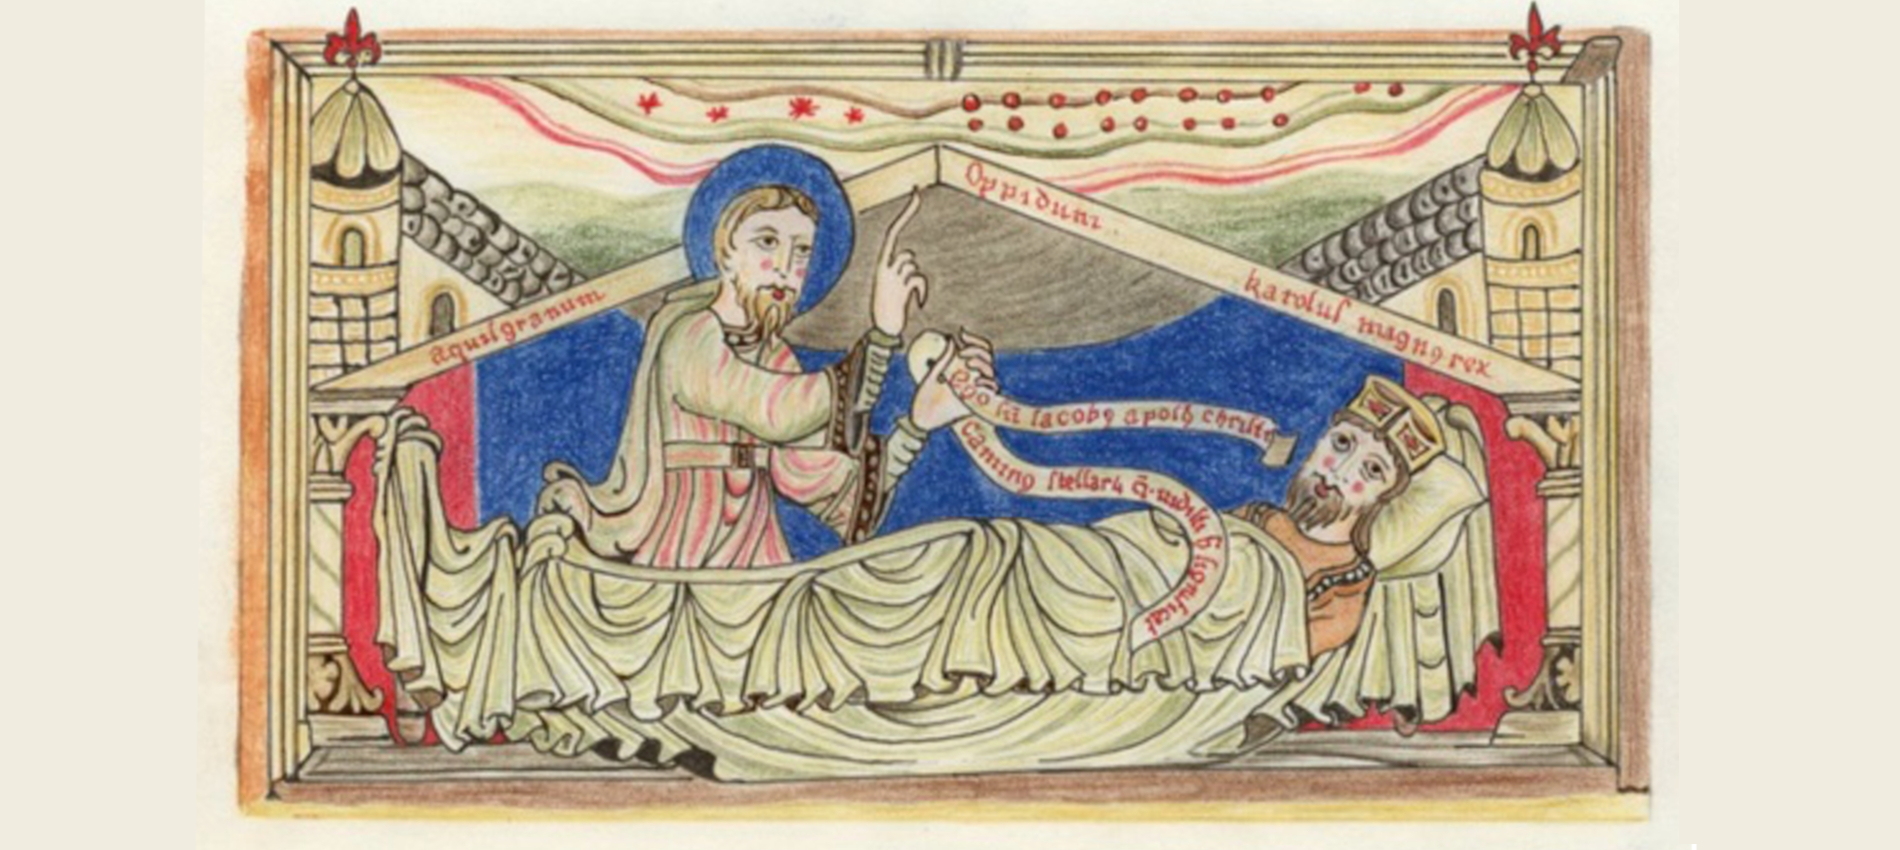 aquisgranum
Oppidum
karolus magnꝯ rex
ego sū iacobꝯ apostꝉs christi
Caminꝯ stellarū
significat